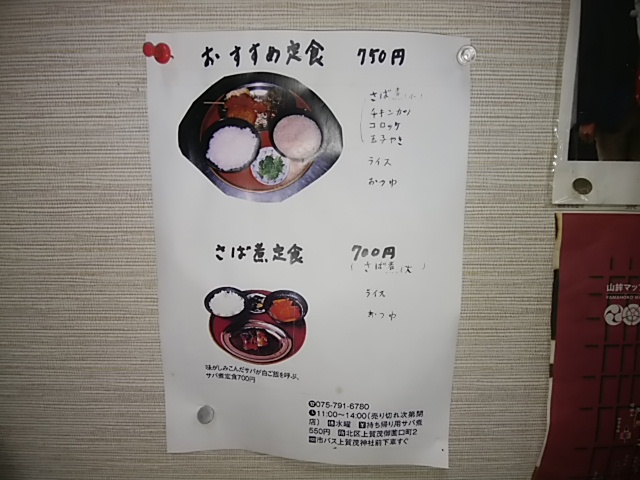 おすすめ定食 750円
さば煮(小)
チキンカツ
コロッケ
玉子やき
ライス
おつゆ
さば煮定食 700円
(さば煮(大)
ライス
おつゆ
味がしみこんだサバが白ご飯を呼ぶ。
サバ煮定食700円
☎075-791-6780
11:00〜14:00(売り切れ次第閉
店) 休水曜 ¥持ち帰り用サバ煮
550円 北区上賀茂御薗口町2
市バス上賀茂神社前下車すぐ
山鉾マップ
YAMAHOKO